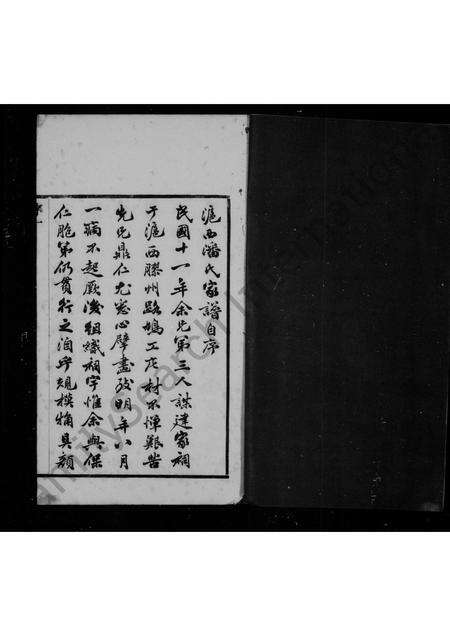 滬西潘氏家譜自序
民國十一年余兄弟三人謀建家祠
于滬西膠州路鳩工庀材不憚艱苦
先兄鼎仁尤悉心擘畫致明年八月
一病不起厥後組織祠宇惟余與保
仁胞弟仍貫行之洎乎規模備具顏
FamilySearch International